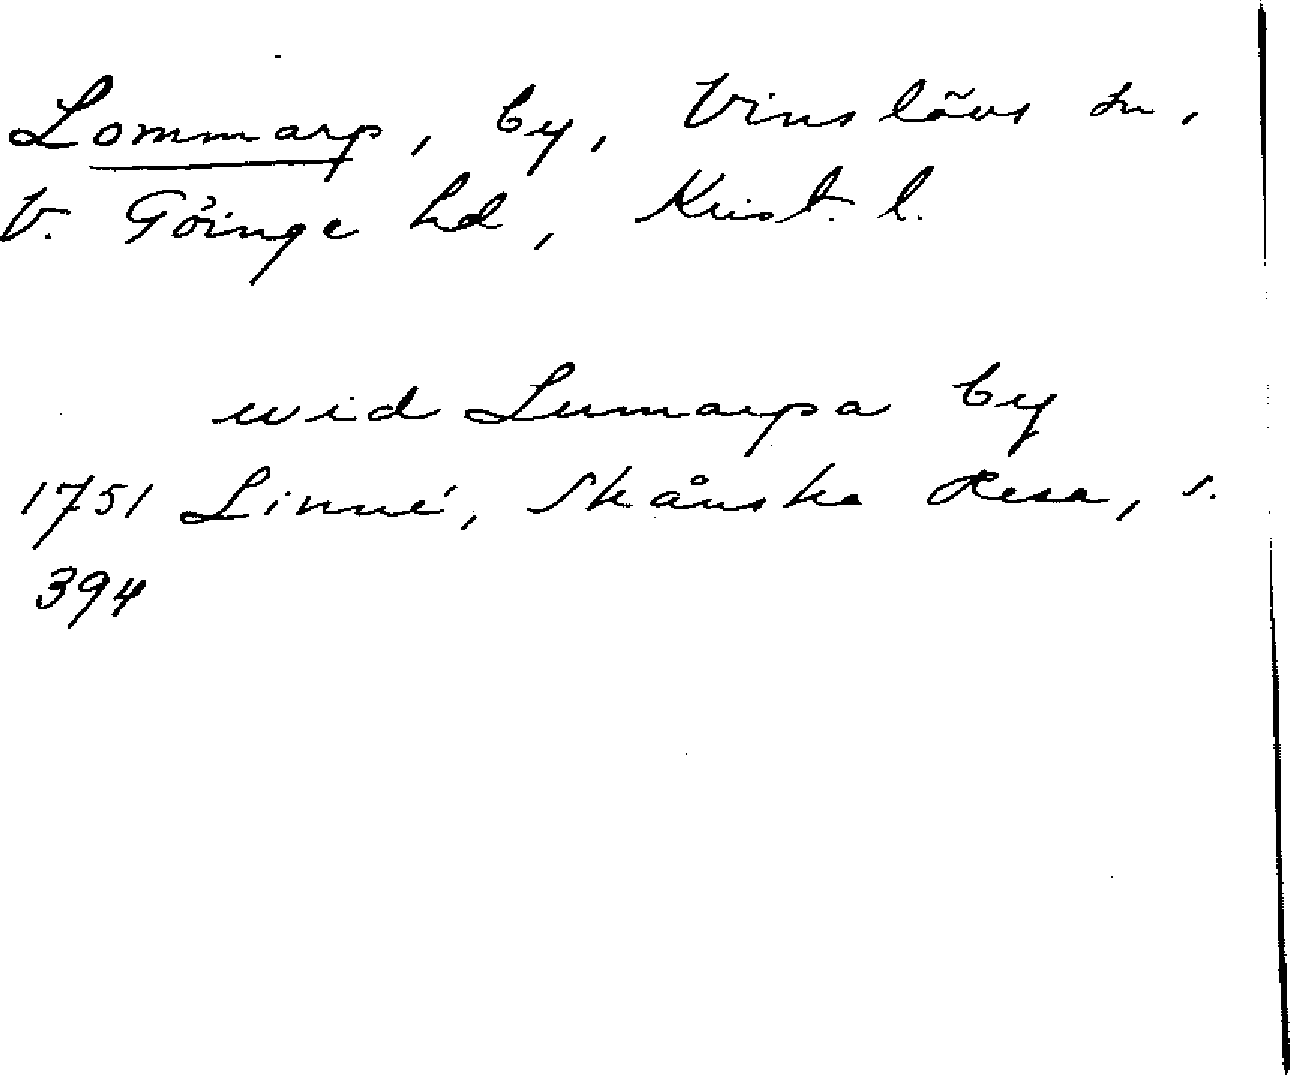 Lommarp, by, Vinslövs sn,
V. Göinge hd, Krist. l.
wid Lumarpa by
1751 Linné, Skånska Resa, s.
394